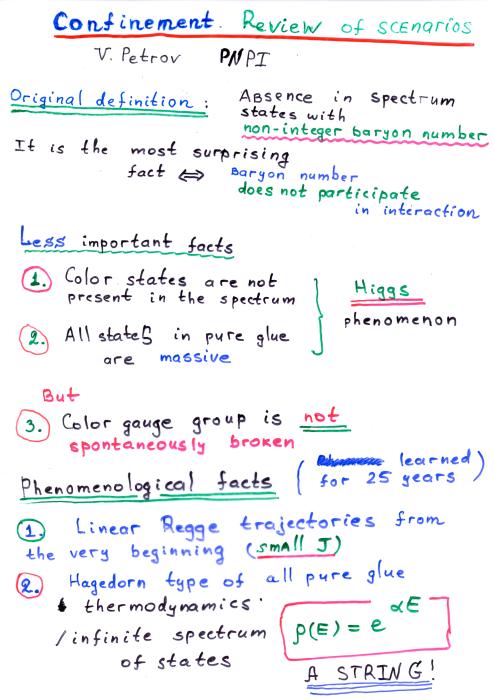 Confinement. Review of scenarios
V. Petrov PNPI
Original definition: Absence in spectrum
states with
non-integer baryon number
It is the most surprising
fact ⇔ Baryon number
does not participate
in interaction
Less important facts
1. Color states are not
present in the spectrum
2. All states in pure glue
are massive
Higgs
phenomenon
But
3. Color gauge group is not
spontaneously broken
Phenomenological facts (learned
for 25 years)
1. Linear Regge trajectories from
the very beginning (small J)
2. Hagedorn type of all pure glue
thermodynamics
/infinite spectrum
of states
ρ(E) = e^{αE}
A STRING!